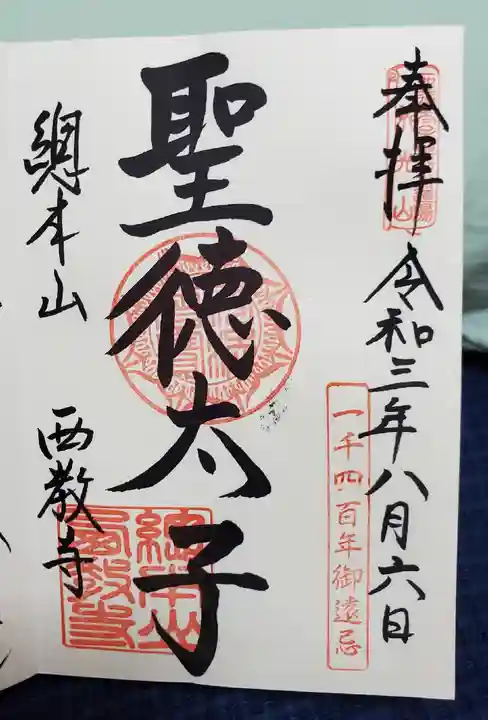 奉拝
令和三年八月六日
一千四百年御遠忌
聖徳太子
總本山
西教寺
總本山西教寺